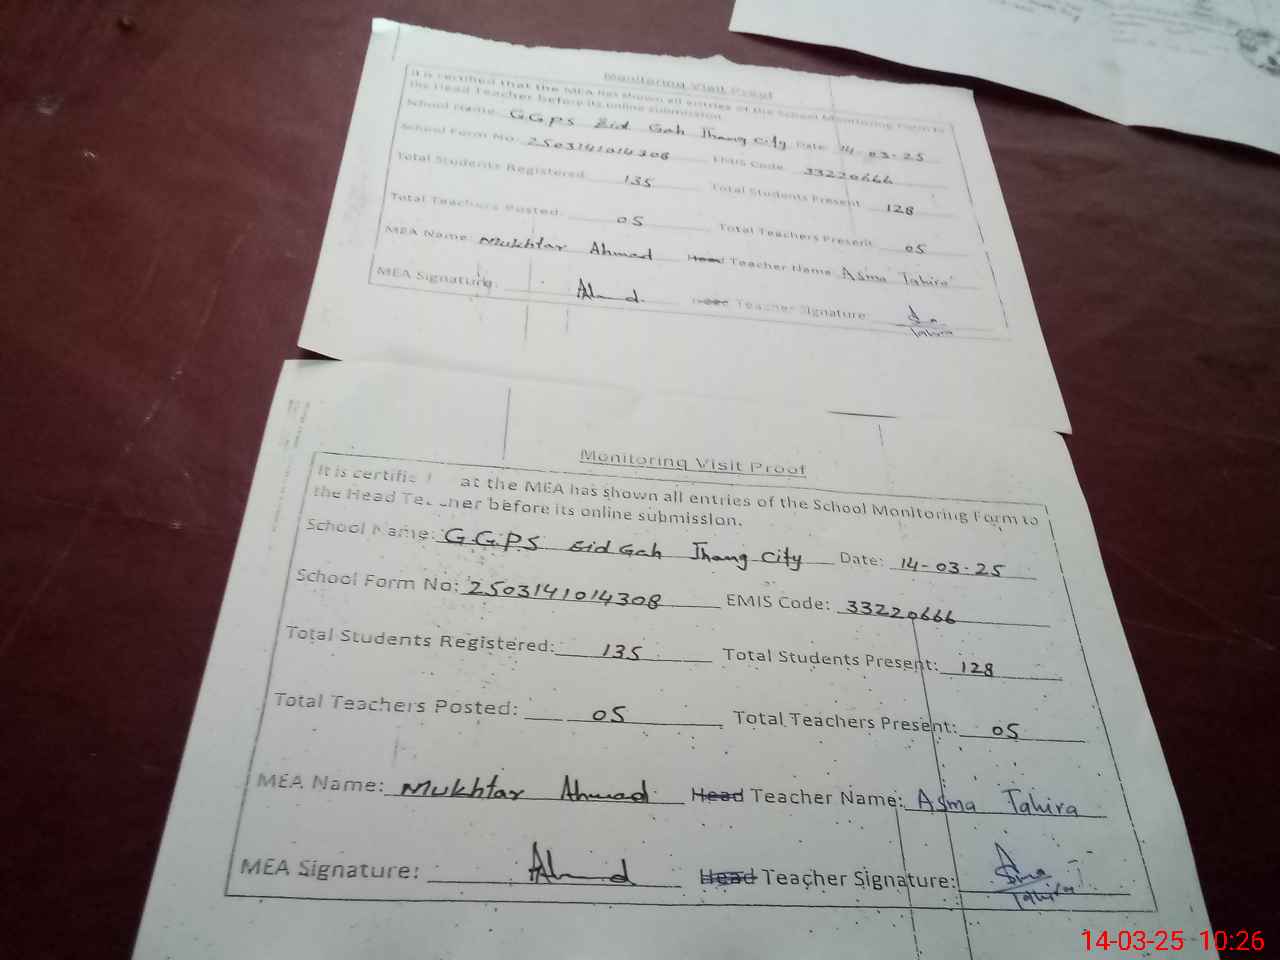 Monitoring Visit Proof
It is certified that the MEA has shown all entries of the School Monitoring Form to
the Head Teacher before its online submission.
School Name: G.G.P.S Eid Gah Jhang City Date: 14-03-25
School Form No: 2503141014308 EMIS Code: 33220666
Total Students Registered: 135 Total Students Present: 128
Total Teachers Posted: 05 Total Teachers Present: 05
MEA Name: Mukhtar Ahmad Head Teacher Name: Asma Tahira
MEA Signature: Ahmd Head Teacher Signature: Asma
Tahira
Monitoring Visit Proof
It is certifie at the MEA has shown all entries of the School Monitoring Form to
the Head Teacher before its online submission.
School Name: G.G.P.S Eid Gah Jhang City Date: 14-03-25
School Form No: 2503141014308 EMIS Code: 33220666
Total Students Registered: 135 Total Students Present: 128
Total Teachers Posted: 05 Total Teachers Present: 05
MEA Name: Mukhtar Ahmad Head Teacher Name: Asma Tahira
MEA Signature: Ahmd Head Teacher Signature: Asma
Tahira
14-03-25 10:26